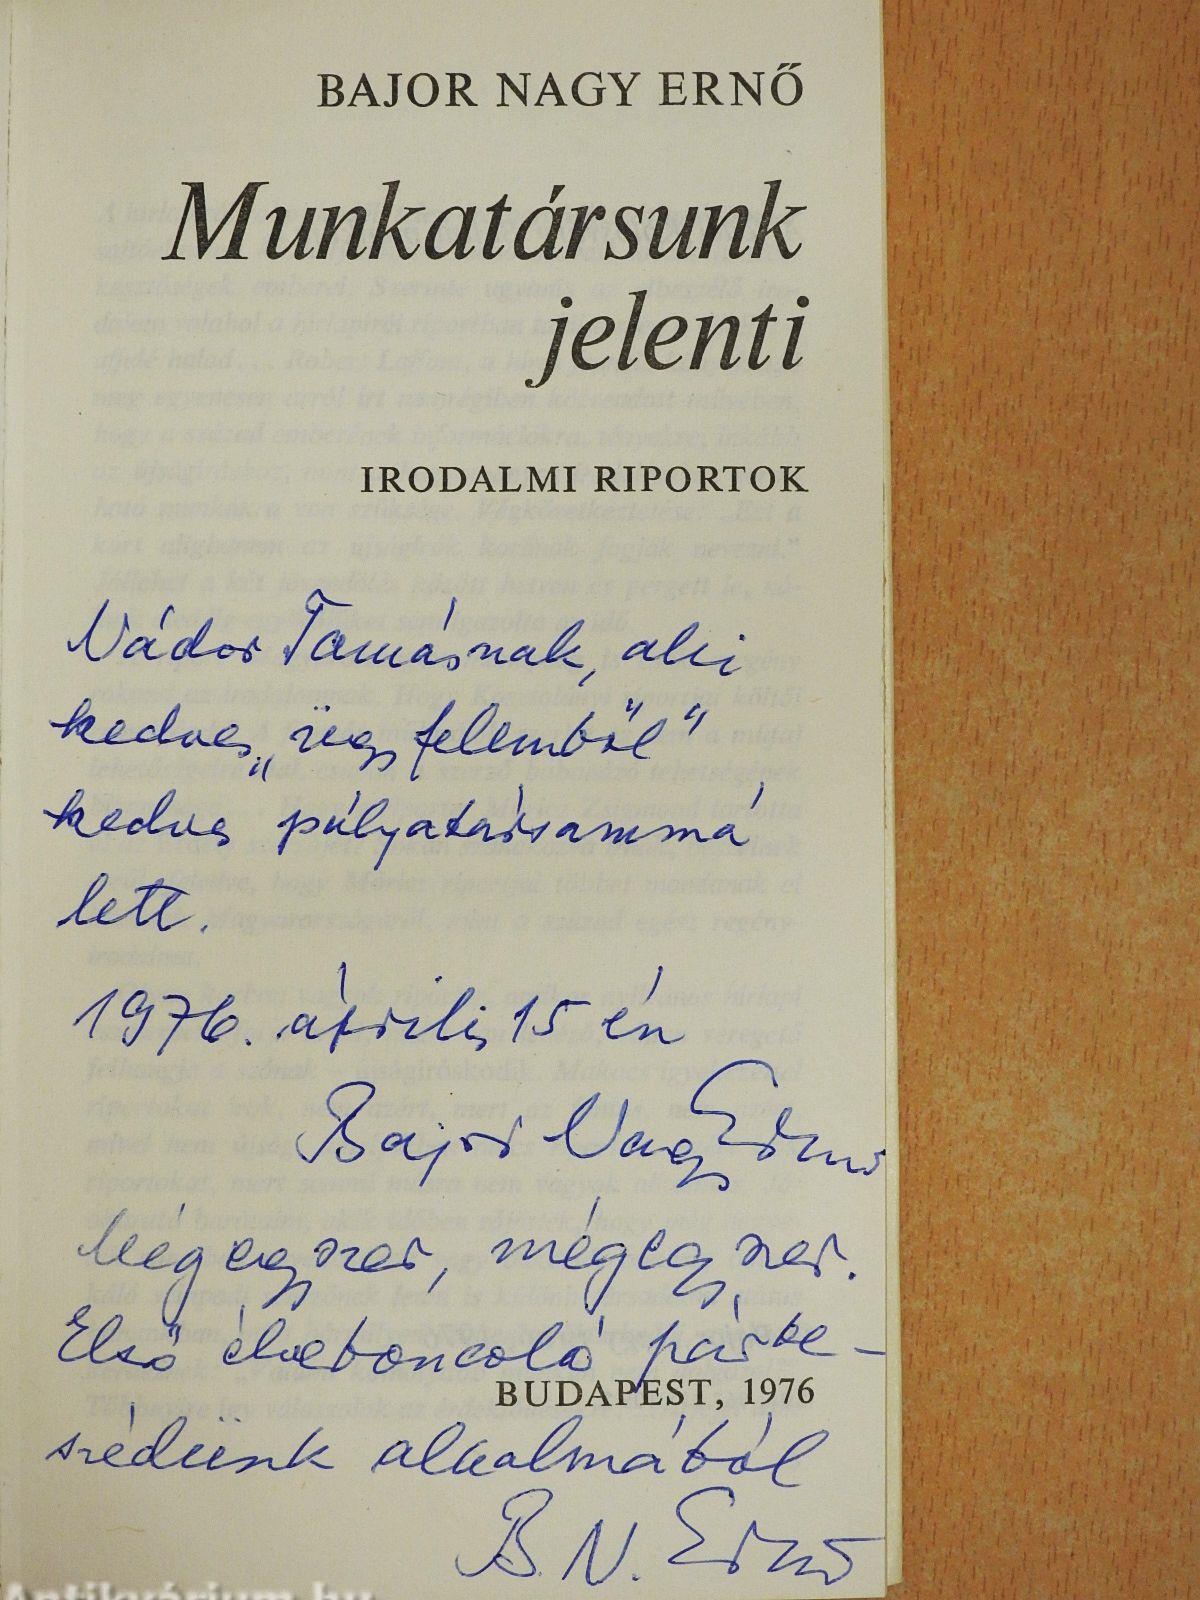 BAJOR NAGY ERNŐ
Munkatársunk
jelenti
IRODALMI RIPORTOK
Nádor Tamásnak, aki
kedves „régi felemből"
kedves pályatársammá
lett.
1976. április 15 én
Bajor Nagy Ernő
Mégegyszer, mégegyszer.
Első élveboncoló párbe-
BUDAPEST, 1976
szédünk alkalmából
B. N. Ernő
Antikvárium.hu